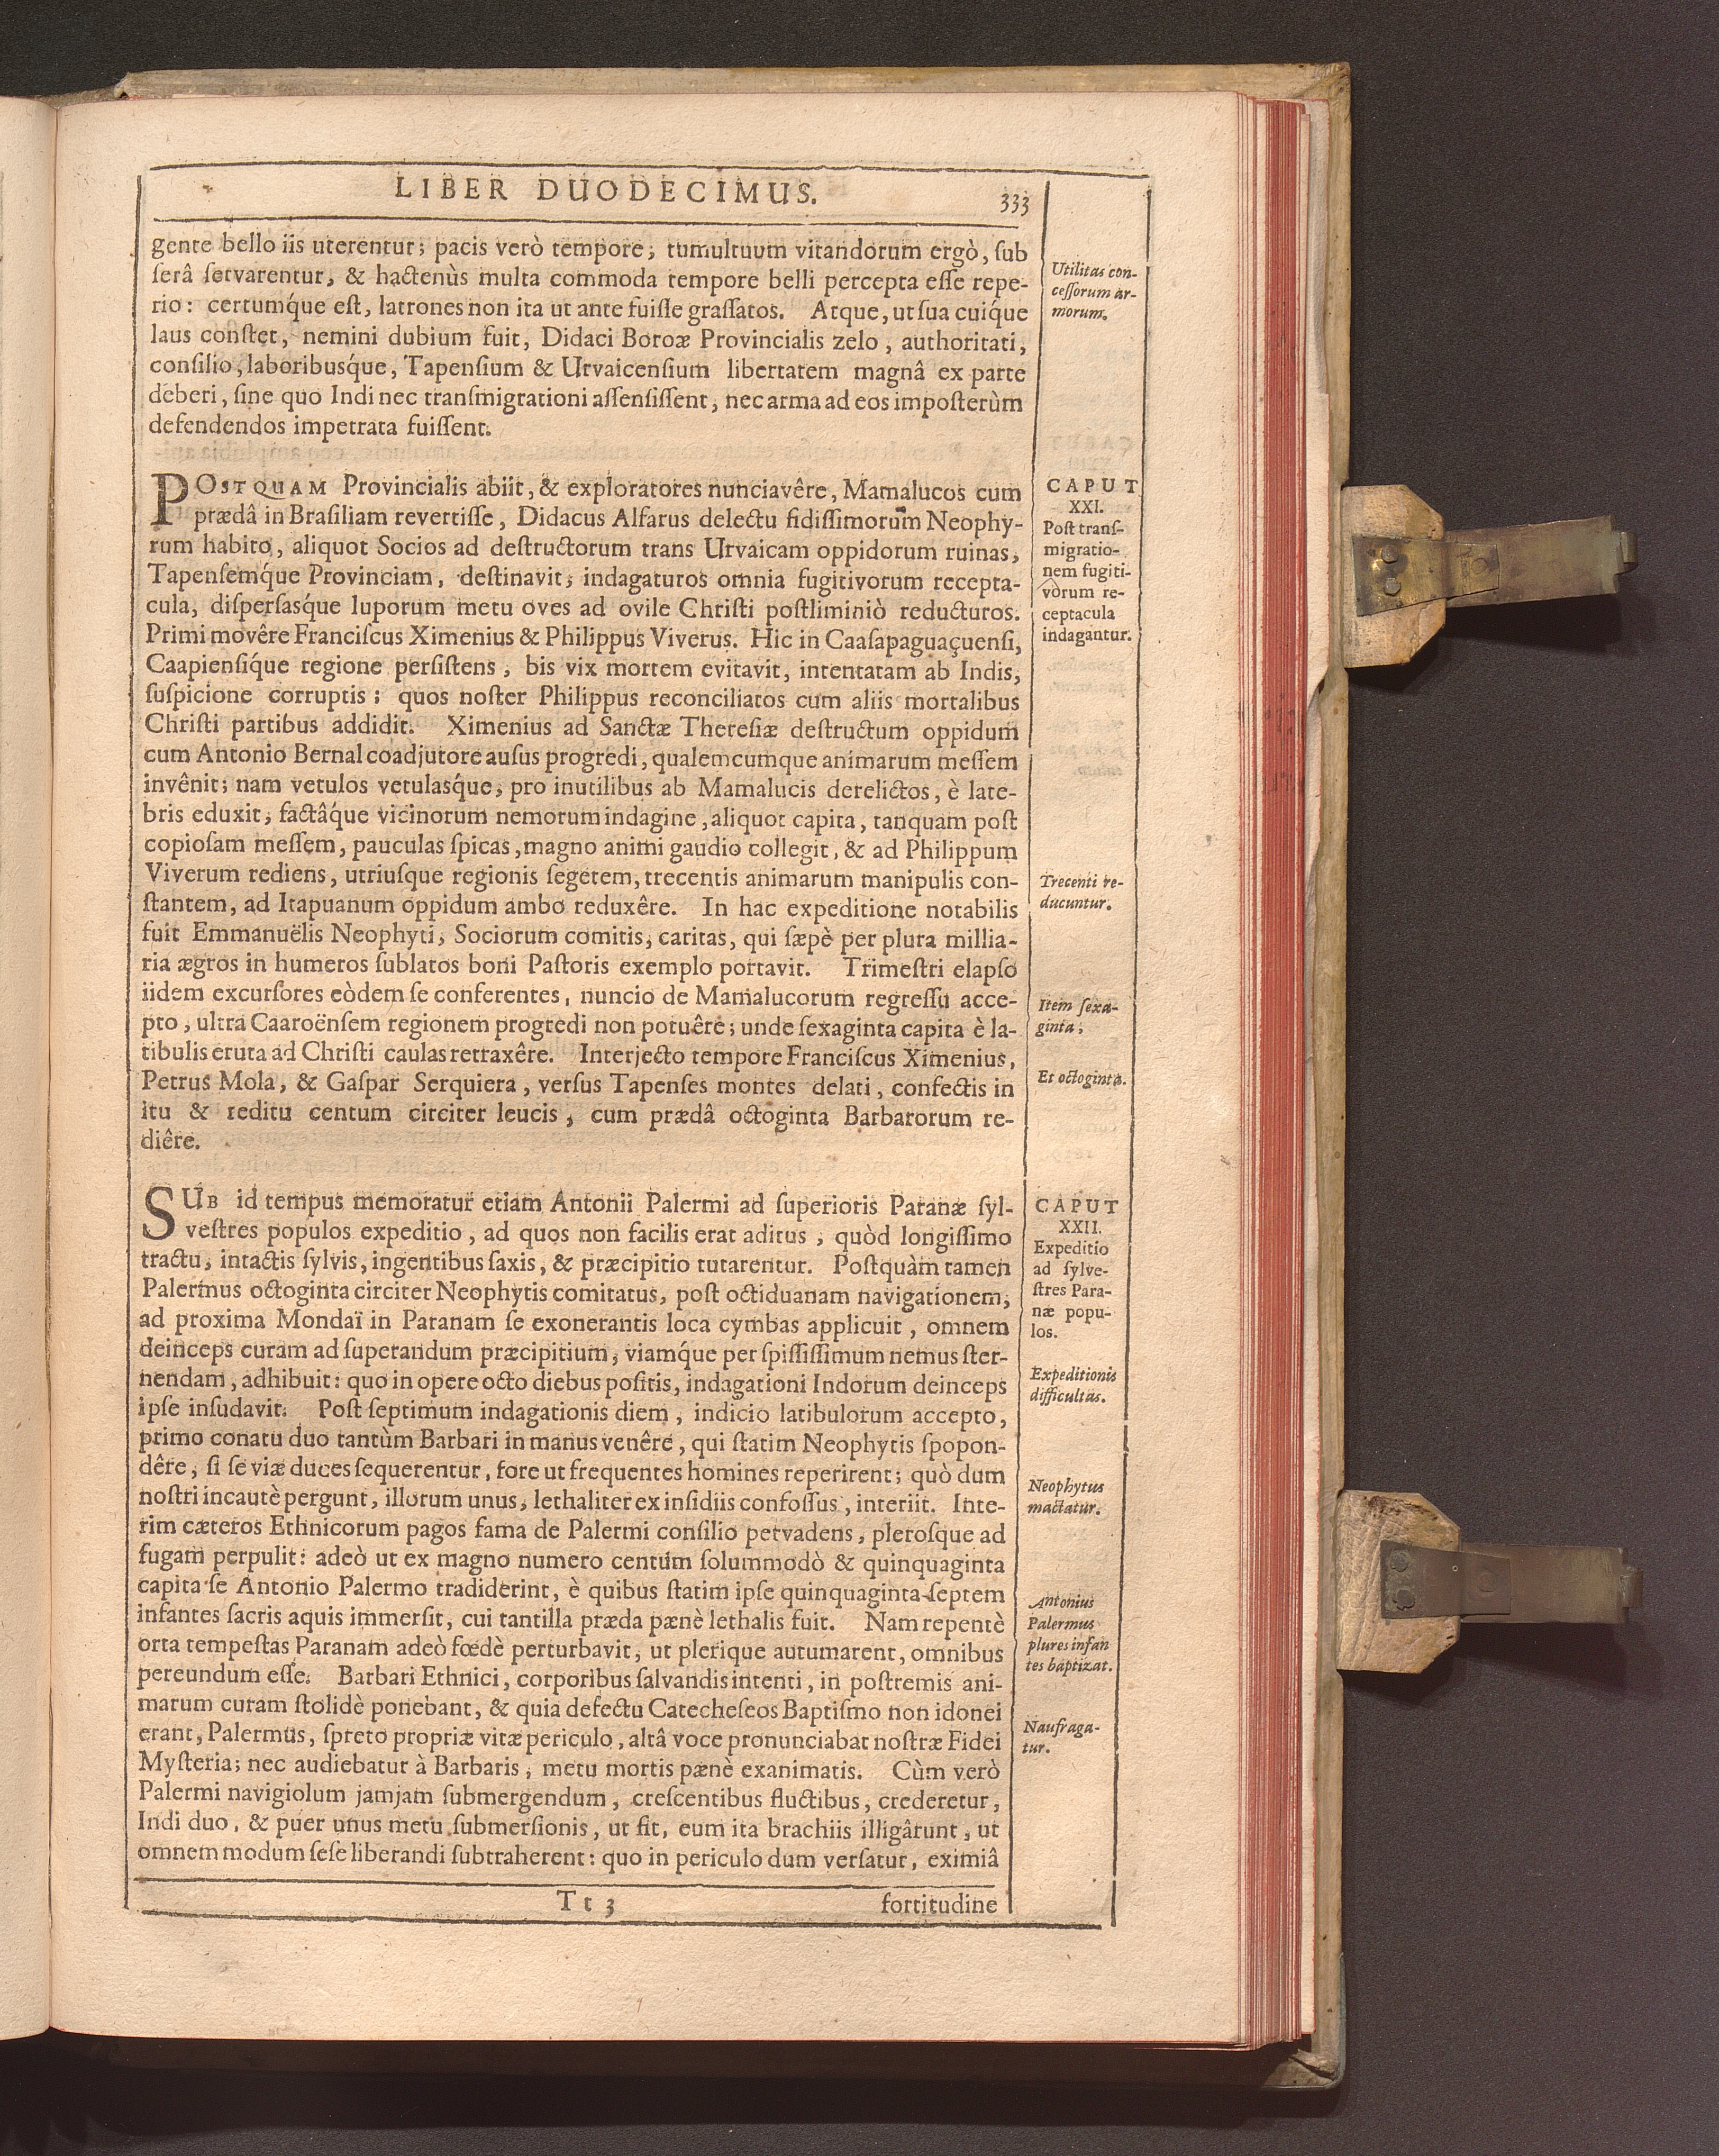 LIBER DUODECIMUS.
333
gente bello iis uterentur; pacis verò tempore, tumultuum vitandorum ergò, ſub
ſerâ ſervarentur, & hactenùs multa commoda tempore belli percepta eſſe repe-
rio: certumq́ue eſt, latrones non ita ut ante fuiſſe graſſatos. Atque, ut ſua cuiq́ue
laus conſtet, nemini dubium fuit, Didaci Boroæ Provincialis zelo, authoritati,
conſilio, laboribusq́ue, Tapenſium & Urvaicenſium libertatem magnâ ex parte
deberi, ſine quo Indi nec tranſmigrationi aſſenſiſſent, nec arma ad eos impoſterùm
defendendos impetrata fuiſſent.
Utilitas con-
ceſſorum ar-
morum.
POSTQUAM Provincialis abiit, & exploratores nunciavêre, Mamalucos cum
prædâ in Braſiliam revertiſſe, Didacus Alfarus delectu fidiſſimorum Neophy-
rum habito, aliquot Socios ad deſtructorum trans Urvaicam oppidorum ruinas,
Tapenſemq́ue Provinciam, deſtinavit, indagaturos omnia fugitivorum recepta-
cula, diſperſasq́ue luporum metu oves ad ovile Chriſti poſtliminiò reducturos.
Primi movêre Franciſcus Ximenius & Philippus Viverus. Hic in Caaſapaguaçuenſi,
Caapienſiq́ue regione perſiſtens, bis vix mortem evitavit, intentatam ab Indis,
ſuſpicione corruptis; quos noſter Philippus reconciliatos cum aliis mortalibus
Chriſti partibus addidit. Ximenius ad Sanctæ Thereſiæ deſtructum oppidum
cum Antonio Bernal coadjutore auſus progredi, qualemcumque animarum meſſem
invênit; nam vetulos vetulasq́ue, pro inutilibus ab Mamalucis derelictos, è late-
bris eduxit, factâq́ue vicinorum nemorum indagine, aliquot capita, tanquam poſt
copioſam meſſem, pauculas ſpicas, magno animi gaudio collegit, & ad Philippum
Viverum rediens, utriuſque regionis ſegetem, trecentis animarum manipulis con-
ſtantem, ad Itapuanum oppidum ambo reduxêre. In hac expeditione notabilis
fuit Emmanuëlis Neophyti, Sociorum comitis, caritas, qui ſæpè per plura millia-
ria ægros in humeros ſublatos boni Paſtoris exemplo portavit. Trimeſtri elapſo
iidem excurſores eòdem ſe conferentes, nuncio de Mamalucorum regreſſu acce-
pto, ultra Caaroënſem regionem progredi non potuêre; unde ſexaginta capita è la-
tibulis eruta ad Chriſti caulas retraxêre. Interjecto tempore Franciſcus Ximenius,
Petrus Mola, & Gaſpar Serquiera, verſus Tapenſes montes delati, confectis in
itu & reditu centum circiter leucis, cum prædâ octoginta Barbarorum re-
diêre.
CAPUT
XXI.
Poſt tranſ-
migratio-
nem fugiti-
vorum re-
ceptacula
indagantur.
Trecenti re-
ducuntur.
Item ſexa-
ginta,
Et octoginta.
SUB id tempus memoratur etiam Antonii Palermi ad ſuperioris Paranæ ſyl-
veſtres populos expeditio, ad quos non facilis erat aditus, quòd longiſſimo
tractu, intactis ſylvis, ingentibus ſaxis, & præcipitio tutarentur. Poſtquàm tamen
Palermus octoginta circiter Neophytis comitatus, poſt octiduanam navigationem,
ad proxima Mondaï in Paranam ſe exonerantis loca cymbas applicuit, omnem
deinceps curam ad ſuperandum præcipitium, viamq́ue per ſpiſſiſſimum nemus ſter-
nendam, adhibuit: quo in opere octo diebus poſitis, indagationi Indorum deinceps
ipſe inſudavit. Poſt ſeptimum indagationis diem, indicio latibulorum accepto,
primo conatu duo tantùm Barbari in manus venêre, qui ſtatim Neophytis ſpopon-
dêre, ſi ſe viæ duces ſequerentur, fore ut frequentes homines reperirent; quò dum
noſtri incautè pergunt, illorum unus, lethaliter ex inſidiis confoſſus, interiit. Inte-
rim cæteros Ethnicorum pagos fama de Palermi conſilio pervadens, pleroſque ad
fugam perpulit: adeò ut ex magno numero centum ſolummodò & quinquaginta
capita ſe Antonio Palermo tradiderint, è quibus ſtatim ipſe quinquaginta ſeptem
infantes ſacris aquis immerſit, cui tantilla præda pænè lethalis fuit. Nam repentè
orta tempeſtas Paranam adeò fœdè perturbavit, ut plerique autumarent, omnibus
pereundum eſſe. Barbari Ethnici, corporibus ſalvandis intenti, in poſtremis ani-
marum curam ſtolidè ponebant, & quia defectu Catecheſeos Baptiſmo non idonei
erant, Palermus, ſpreto propriæ vitæ periculo, altâ voce pronunciabat noſtræ Fidei
Myſteria; nec audiebatur à Barbaris, metu mortis pænè exanimatis. Cùm verò
Palermi navigiolum jamjam ſubmergendum, creſcentibus fluctibus, crederetur,
Indi duo, & puer unus metu ſubmerſionis, ut fit, eum ita brachiis illigârunt, ut
omnem modum ſeſe liberandi ſubtraherent: quo in periculo dum verſatur, eximiâ
CAPUT
XXII.
Expeditio
ad ſylve-
ſtres Para-
næ popu-
los.
Expeditionis
difficultas.
Neophytus
mactatur.
Antonius
Palermus
plures infan
tes baptizat.
Naufraga-
tur.
Tt 3
fortitudine